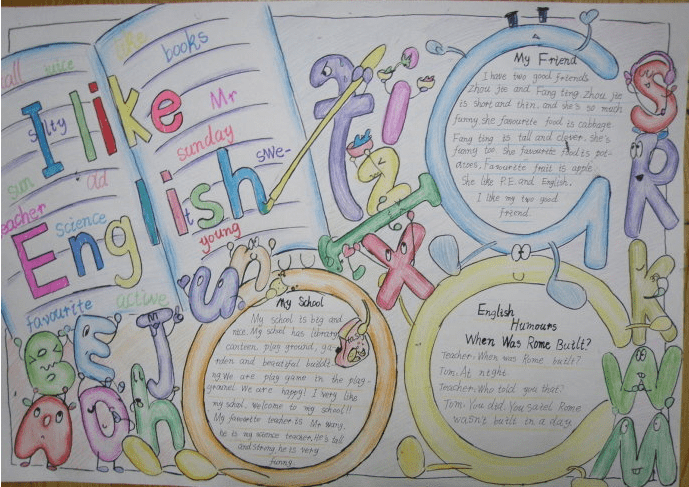 tall
juice
like
books
salty
Mr
sunday
swe-
sun
ad
teacher
science
it
young
favourite
active
I like
English
My Friend
I have two good friends
Zhou jie and Fang ting Zhou jie
is short and thin. and she's so much
funny she favourite food is cabbage.
Fang ting is tall and clever. she's
funny too. She favourite food is pot-
atoes, Favourite fruit is apple
She like P.E. and English.
I like my two good
friend.
My School
My school is big and
nice. My school has library
canteen play ground, ga-
rden and beautiful buildi-
ng We are play game in the play-
ground. We are happy! I very like
my school. welcome to my school!!
My favourite teacher is Mr Wang,
he is my science teacher. He's tall
and strong, he is very
funny.
English
Humours
When Was Rome Built?
Teacher: When was Rome built?
Tom: At night.
Teacher: Who told you that?
Tom: You did. You saied Rome
wasn't built in a day
t i
z
x
S
R
K
W
M
G
B E J
A O h
u n